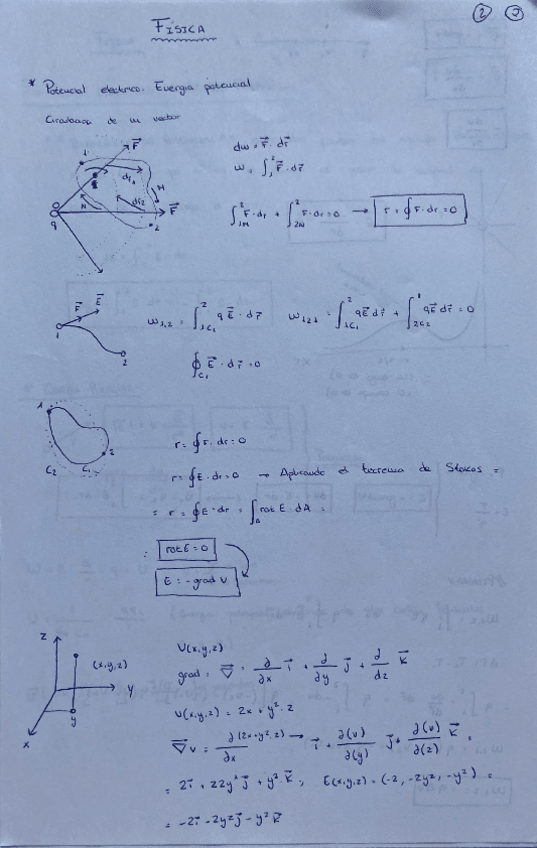 2 2
FÍSICA
* Potencial electrico. Energia potencial
Circulacion de un vector
1 F⃗
dr₁ M
N dr₂
q F⃗ 2
dw = F⃗ · dr⃗
w = ∫₁² F⃗ · dr⃗
∫₁M² F · dr + ∫₂N² F · dr = 0 → r = ∮ F · dr = 0
F⃗ E⃗
1 2
W₁,₂ = ∫₁C₁² q E⃗ · dr⃗ W₁₂₁ = ∫₁C₁² qE⃗ dr⃗ + ∫₂C₂¹ qE⃗ dr⃗ = 0
∮C₁ E⃗ · dr⃗ = 0
1 2
C₂ C₁
r = ∮ F · dr = 0
r = ∮ E · dr = 0 → Aplicando el teorema de Stokes =
= r = ∮ E · dr = ∫A rot E · dA =
= rot E = 0
E = - grad V
z (x,y,z) y
x y
U(x,y,z)
grad = ∇⃗ = ∂/∂x i⃗ + ∂/∂y j⃗ + ∂/∂z k⃗
U(x,y,z) = 2x + y² · z
∇⃗v = ∂(2x+y²,z)/∂x → i⃗ + ∂(v)/∂(y) j⃗ + ∂(v)/∂(z) k⃗ =
= 2i⃗ + 2zy² j⃗ + y² k⃗ ; E(x,y,z) = (-2, -2yz, -y²) =
= -2i⃗ - 2yz j⃗ - y² k⃗